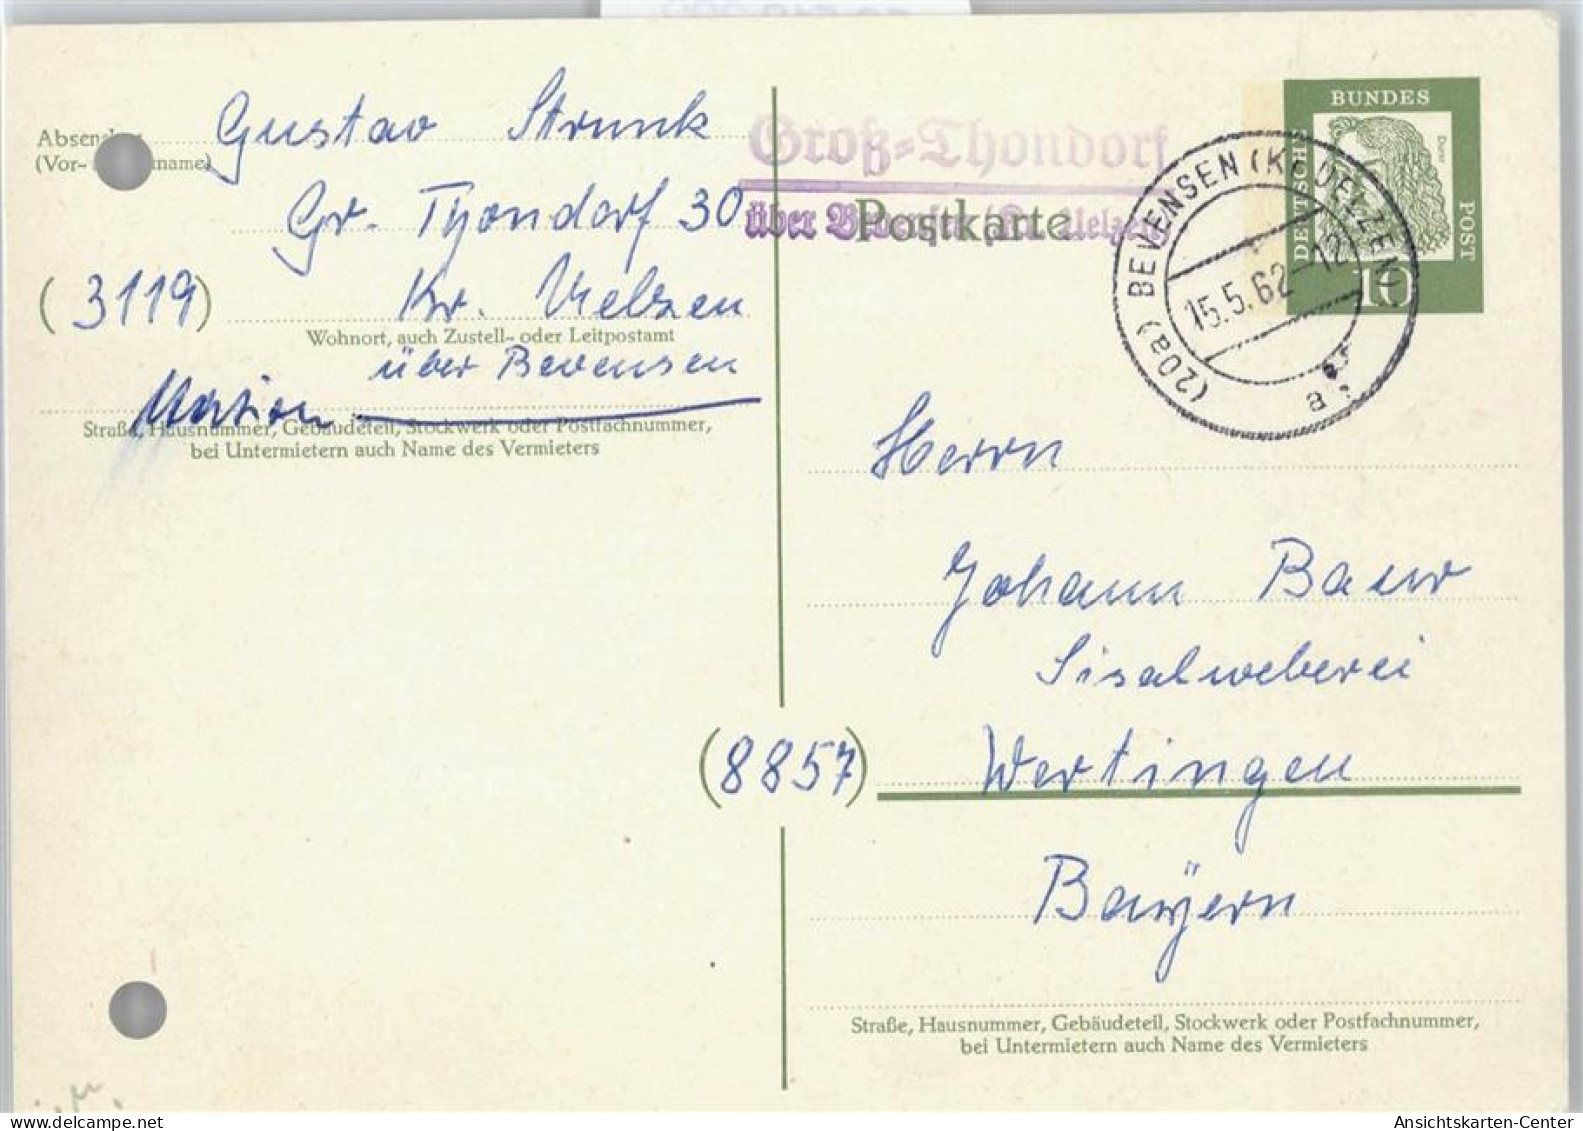 Gustav Strunk
(Vor-
Gr. Thondorf 30
(3119)
Kr. Uelzen
Wohnort, auch Zustell- oder Leitpostamt
über Bevensen
Straße, Hausnummer, Gebäudeteil, Stockwerk oder Postfachnummer,
bei Untermietern auch Name des Vermieters
Groß-Thondorf
über Bevensen (Kr. Uelzen)
Postkarte
(20a) BEVENSEN (Kr UELZEN)
15.5.62-12
a
DEUTSCHE
BUNDES
POST
Dürer
10
Herrn
Johann Baur
Sisalweberei
(8857)
Wertingen
Bayern
Straße, Hausnummer, Gebäudeteil, Stockwerk oder Postfachnummer,
bei Untermietern auch Name des Vermieters
Ansichtskarten-Center